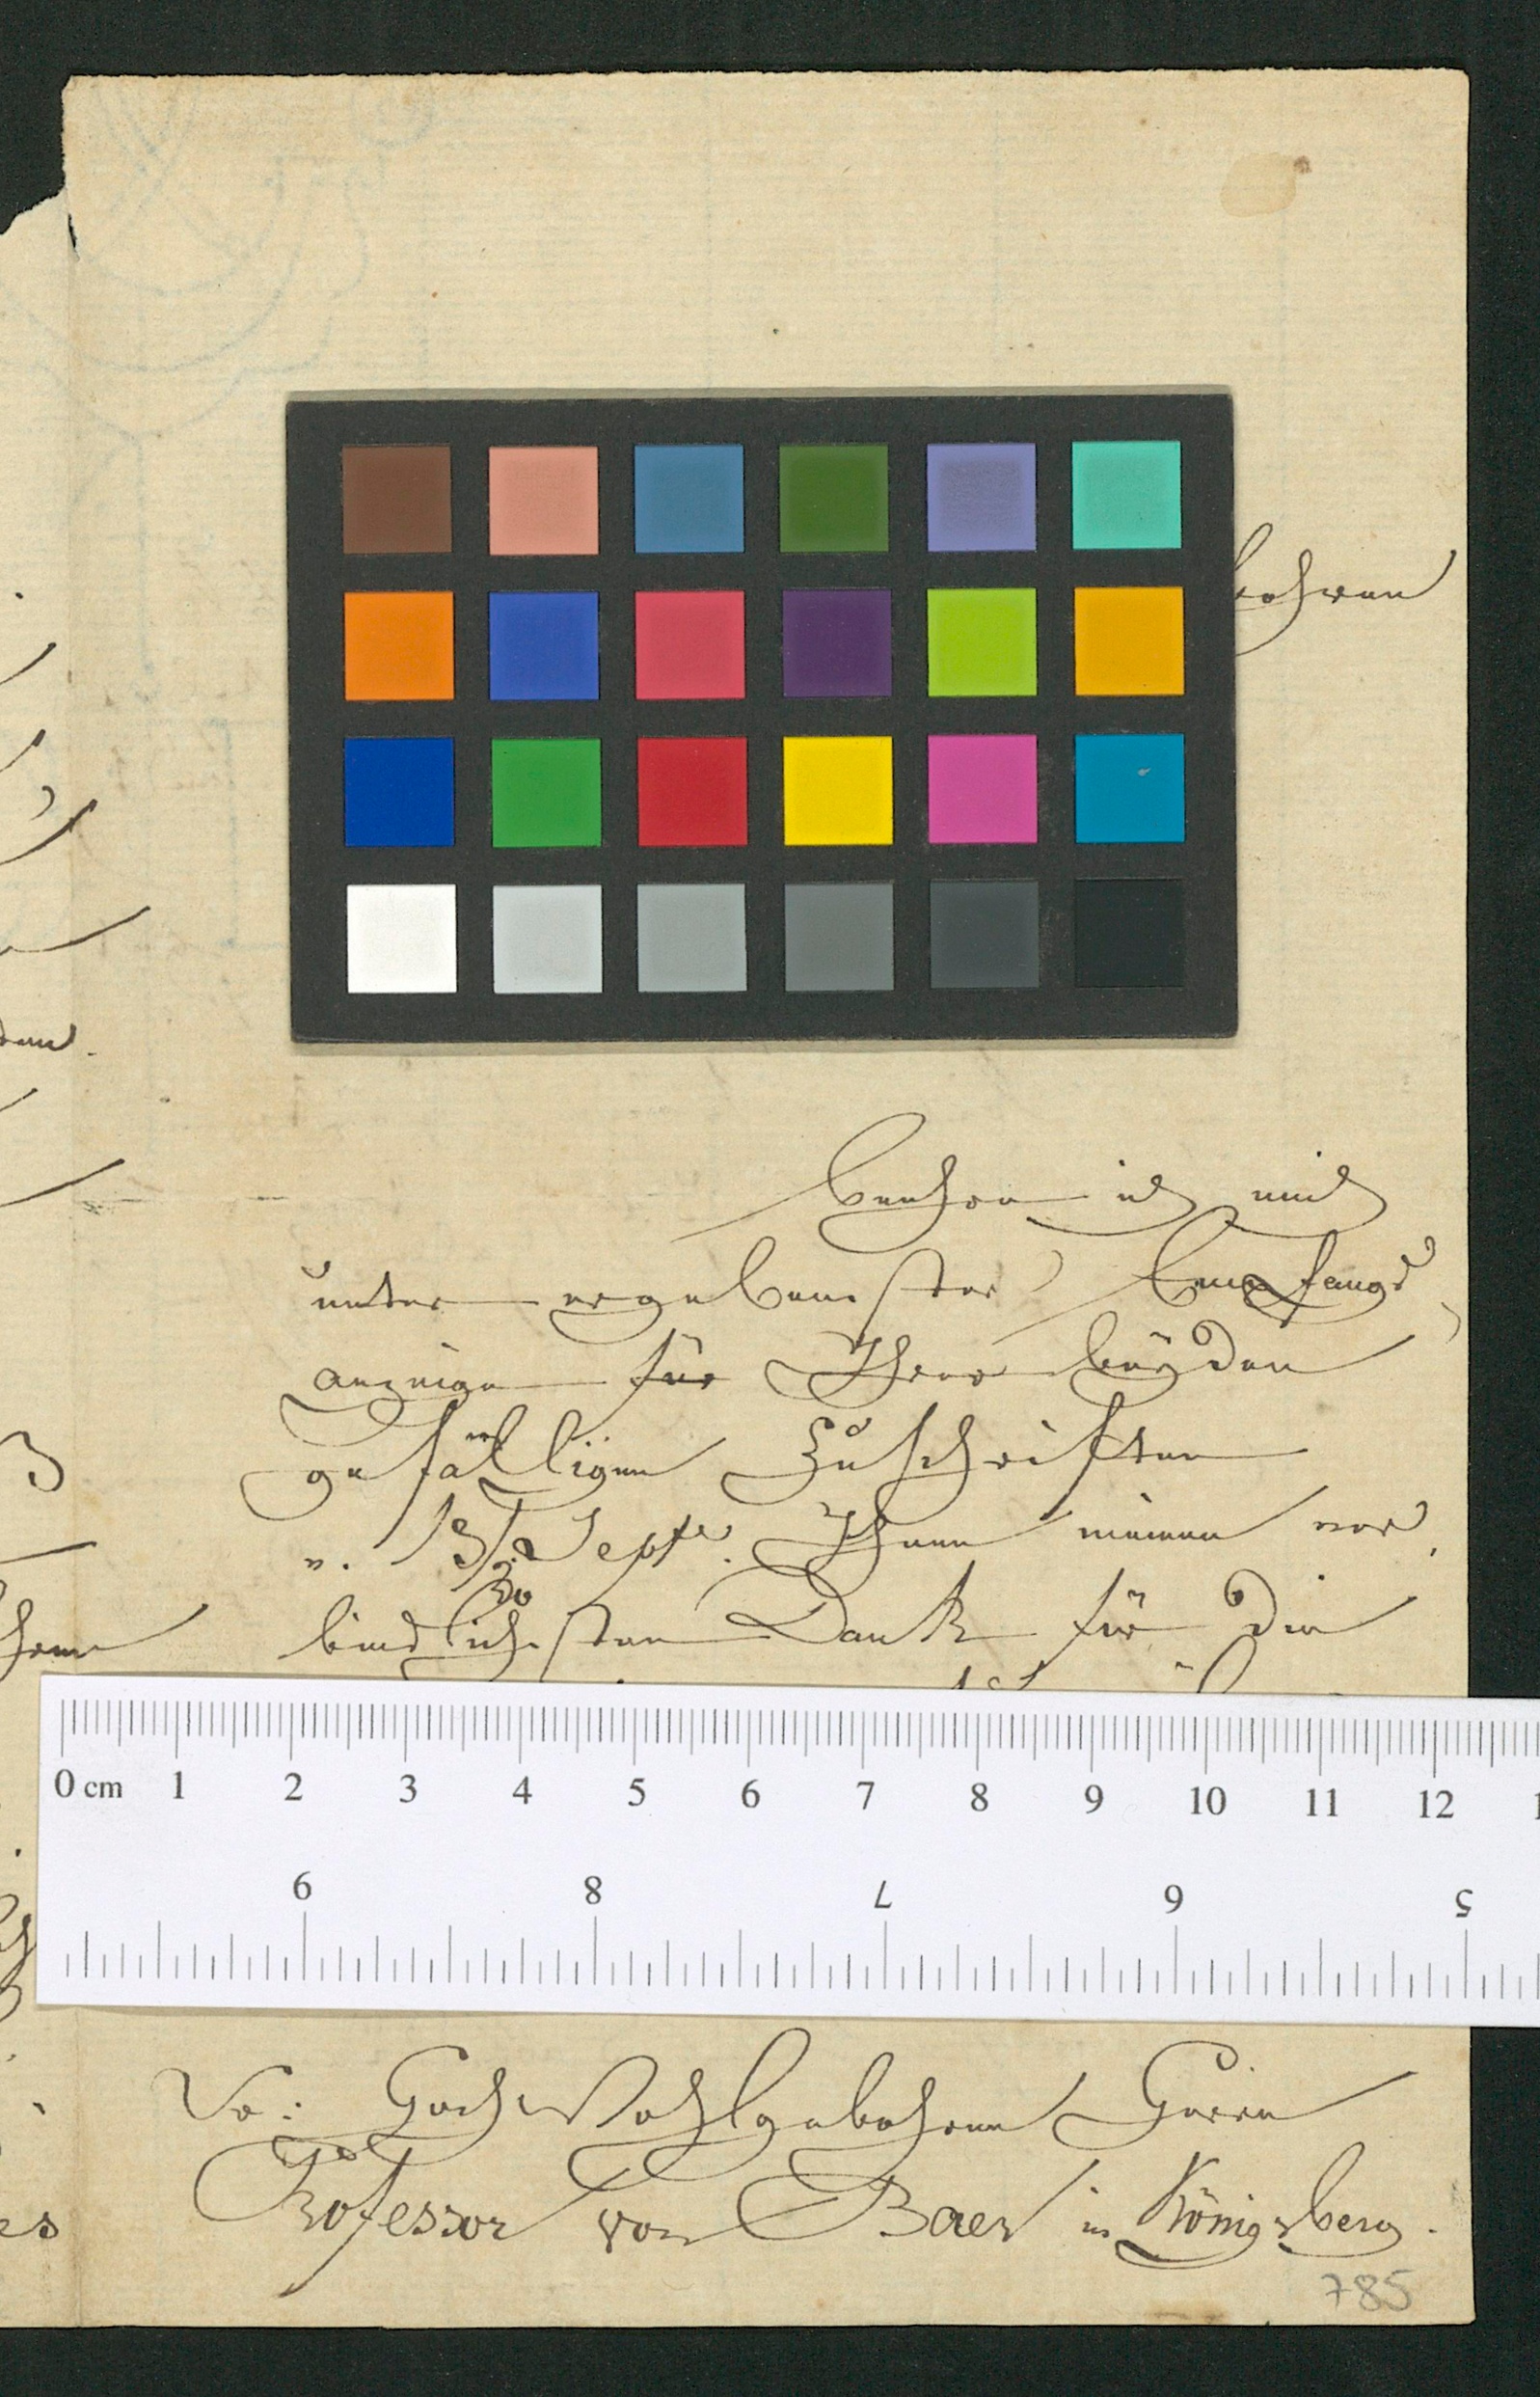 beehre ich mich
unter ergebenster Empfangs
anzeige für Ihrer beyden
gefälligen Zuschriften
v. 13/30 Septr. Ihnen meinen ver,
bindlichsten Dank für die
0 cm 1 2 3 4 5 6 7 8 9 10 11 12
9 8 7 6 5
Sr: HochWohlgebohren Herrn
Professor von Baer in Königsberg.
785